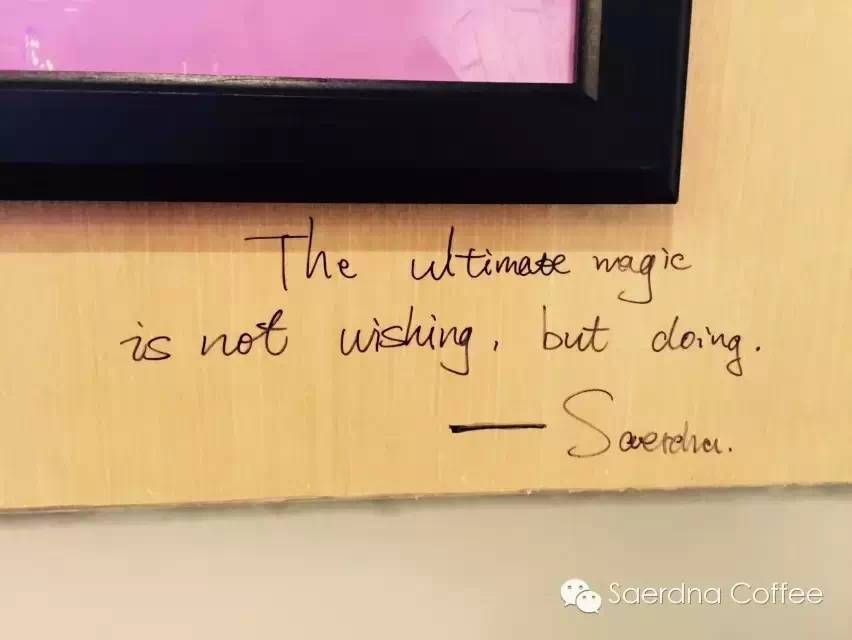 The ultimate magic
is not wishing, but doing.
— Saerdna.
Saerdna Coffee